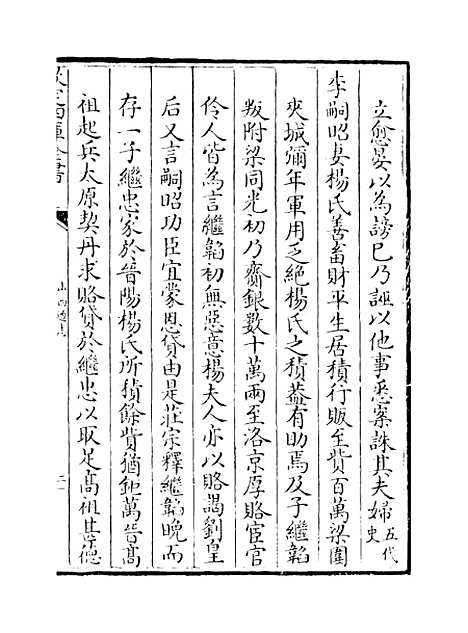 立愈晏以為謗已乃誣以他事悉案誅其夫婦五代史
李嗣昭妻楊氏善畜財平生居積行販至貲百萬梁圍
夾城彌年軍用乏絕楊氏之積葢有助焉及子繼韜
叛附梁同光初乃齎銀數十萬兩至洛京厚賂宦官
伶人皆為言繼韜初無惡意楊夫人亦以賂謁劉皇
后又言嗣昭功臣宜蒙恩貸由是莊宗釋繼韜晚而
存一子繼忠家於晉陽楊氏所積餘貲猶鉅萬晉高
祖起兵太原契丹求賂貸於繼忠以取足高祖甚德
欽定四庫全書
山西通志